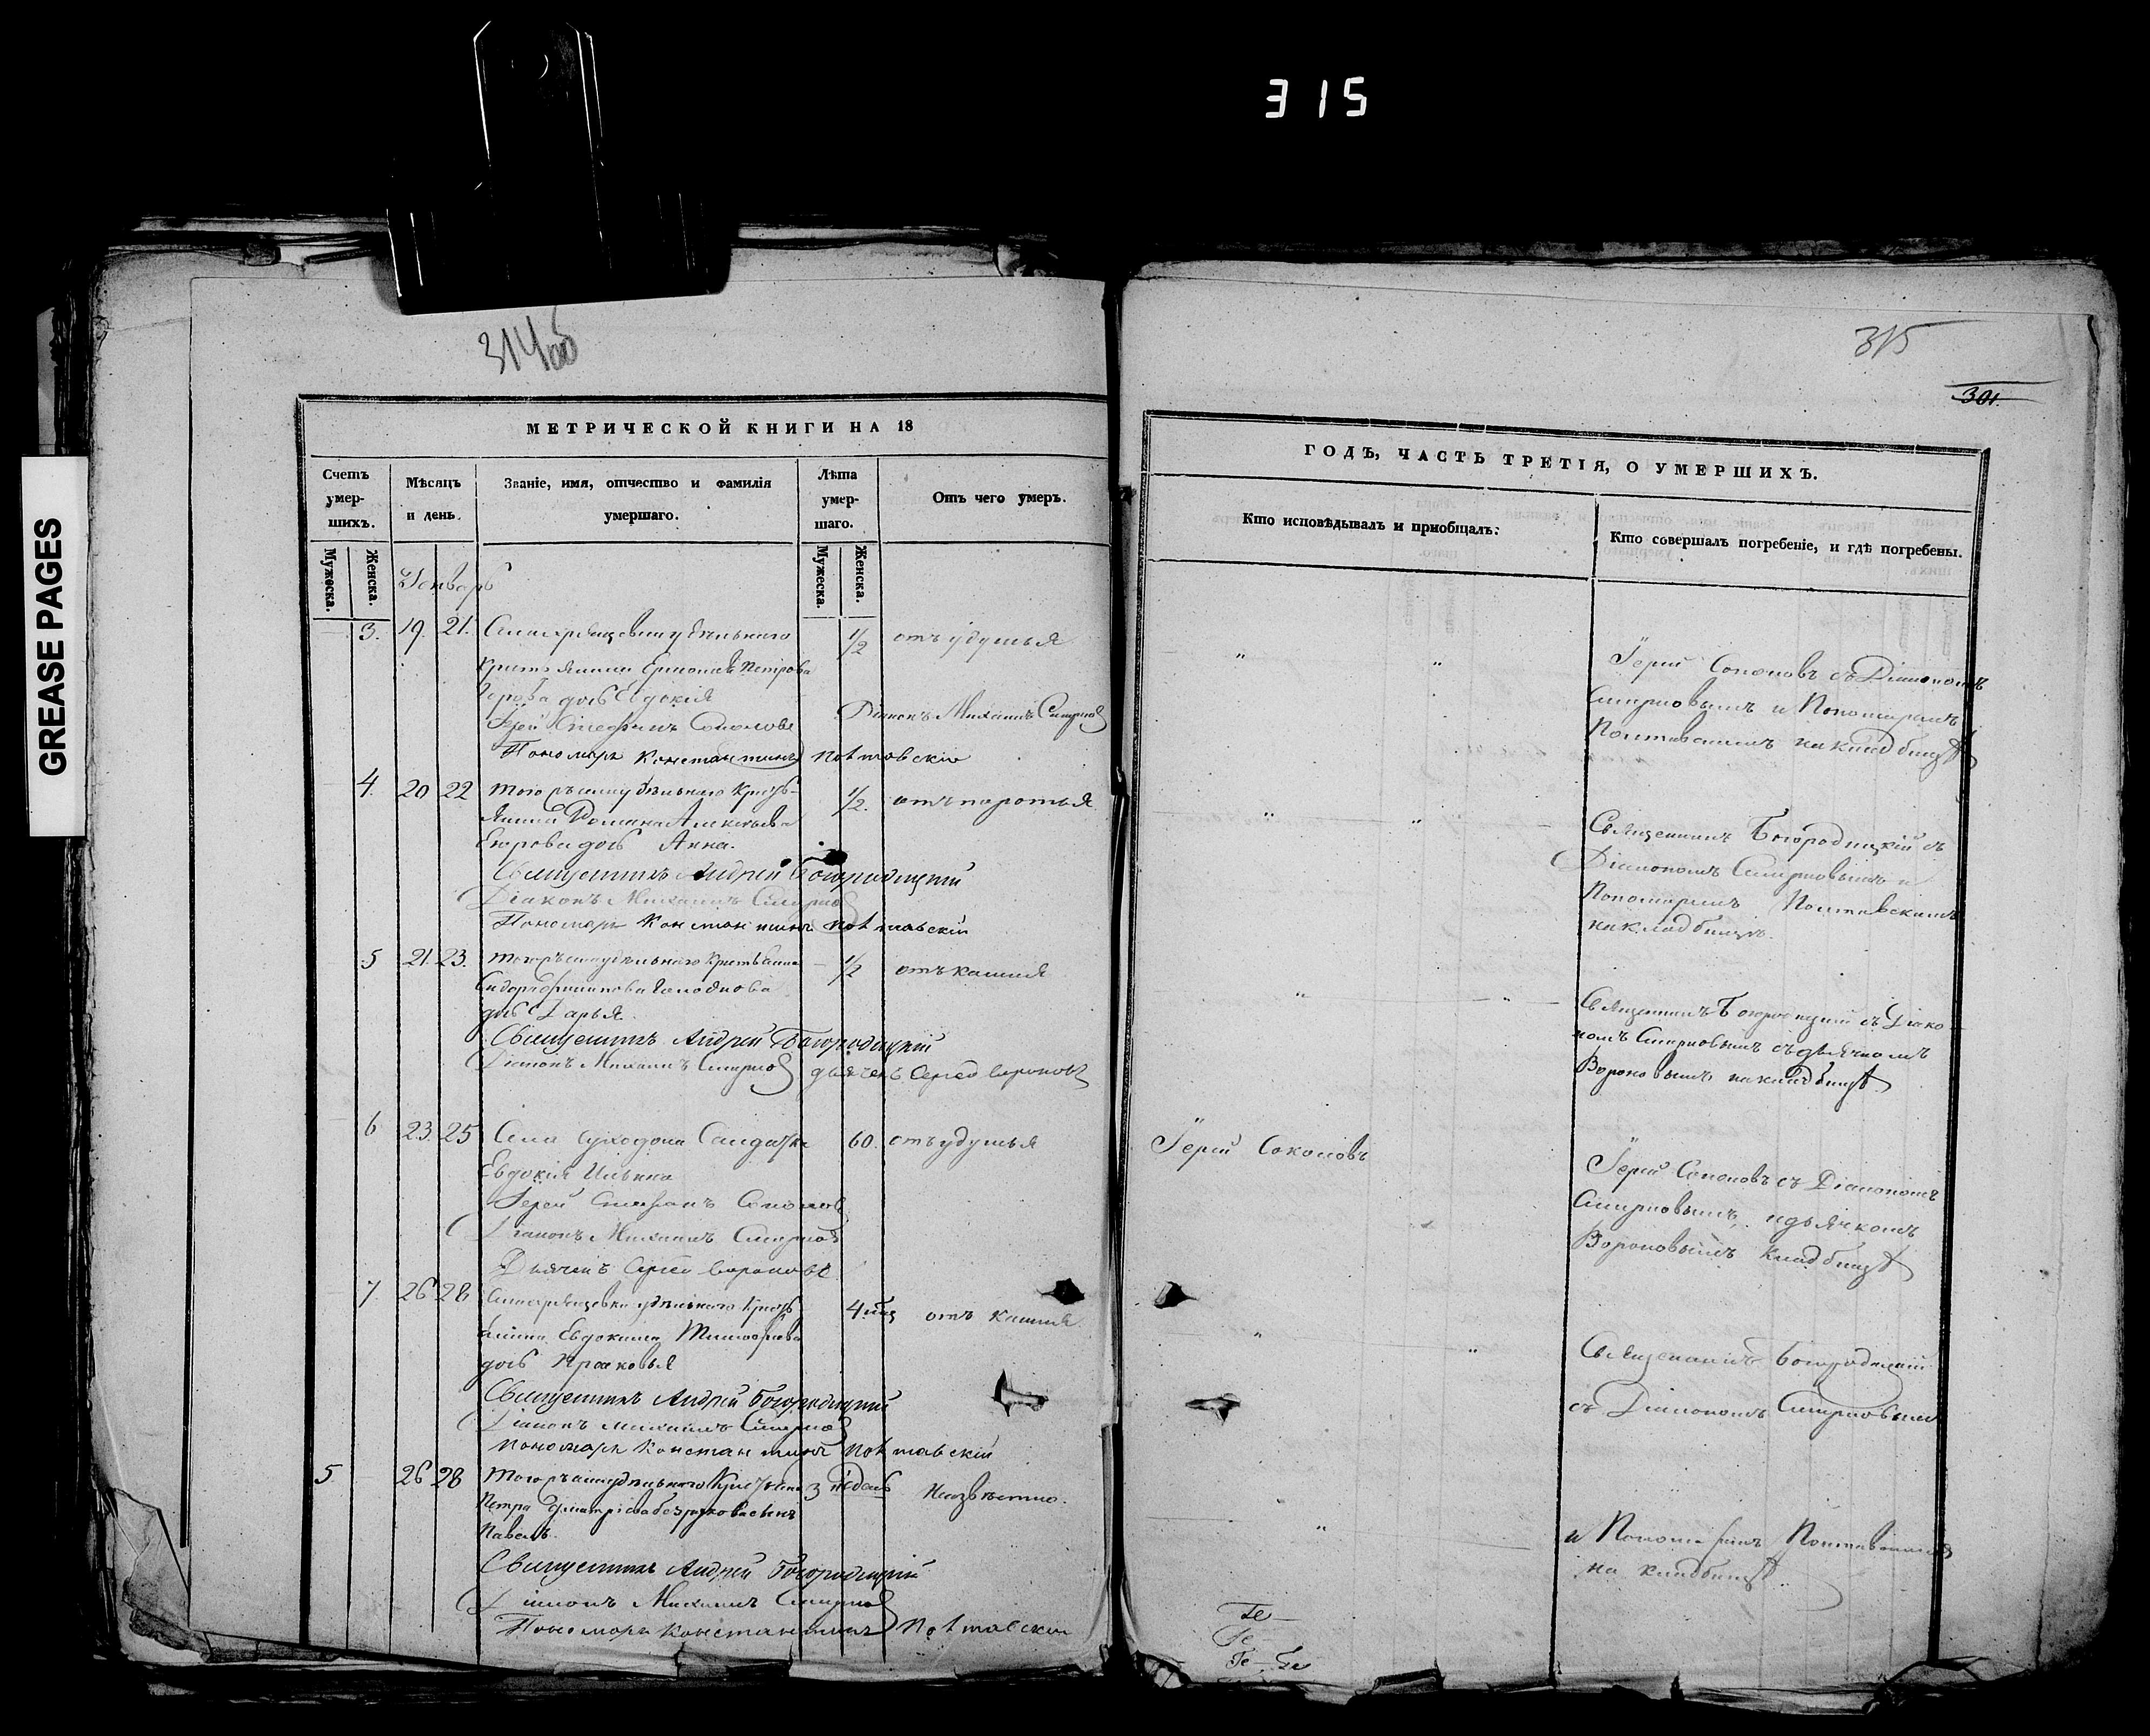 315
GREASE PAGES
314 об
МЕТРИЧЕСКОЙ КНИГИ НА 18
Счетъ умер- шихъ.
Мѣсяцъ и день.
Званіе, имя, отчество и фамилія умершаго.
Лѣта умер- шаго.
Отъ чего умеръ.
Мужеска.
Женска.
Мужеска.
Женска.
Генварь
3. 19. 21. удѣльнаго 1/2 отъ удушья
Петрова
дочь Евдокія
Іерей Стефанъ Соколовъ Діаконъ Михаилъ Смирнов
Пономарь Константинъ Полтавскій
4. 20 22 того ръ удѣльнаго Кресть- 1/2. отъ
янина Романа Алексѣева
дочь Анна.
Священникъ Андрей Богородицкій
Діаконъ Михаилъ Смирнов
Пономарь Константинъ Полтавскій
5 21. 23. удѣльнаго 1/2 отъ кашля
дочь Дарья.
Священникъ Андрей Богородицкій
Діаконъ Михаилъ Смирнов дьячекъ Сергей Вороновъ
6 23. 25 Села Суходола Солдатка 60. отъ удушья
Евдокія Ильина
Іерей Стефанъ Соколов
Діаконъ Михаилъ Смирнов
Дьячекъ Сергей Вороновъ
7. 26 28 удѣльнаго Кресть 4 отъ кашля
янина Евдокима Тимофѣева
дочь Прасковья
Священникъ Андрей Богородицкій
Діаконъ Михаилъ Смирнов
Пономарь Константинъ Полтавскій
5 26 28 удѣльнаго 3 недель Неизвѣстно.
Петра Димитріева сынъ
Павелъ.
Священникъ Андрей Богородицкій
Діаконъ Михаилъ Смирнов
Пономарь Константинъ Полтавскій
315
301.
ГОДЪ, ЧАСТЬ ТРЕТІЯ, О УМЕРШИХЪ.
Кто исповѣдывалъ и пріобщалъ:
Кто совершалъ погребеніе, и гдѣ погребены.
" " Іерей Соколовъ съ Діакономъ
Смирновымъ и Пономаремъ
Полтавскимъ на кладбищѣ
" " Священникъ Богородицкій съ
Діакономъ Смирновымъ и
Пономаремъ Полтавскимъ
на кладбищѣ.
" " Священникъ Богородицкій съ Діако-
номъ Смирновымъ съ дьячкомъ
Вороновымъ на кладбищѣ
Іерей Соколовъ
Іерей Соколовъ съ Діакономъ
Смирновымъ, и дьячкомъ
Вороновымъ кладбищѣ
" " Священникъ Богородицкій
съ Діакономъ Смирновымъ
" и Пономаремъ Полтавскимъ
на кладбищѣ.